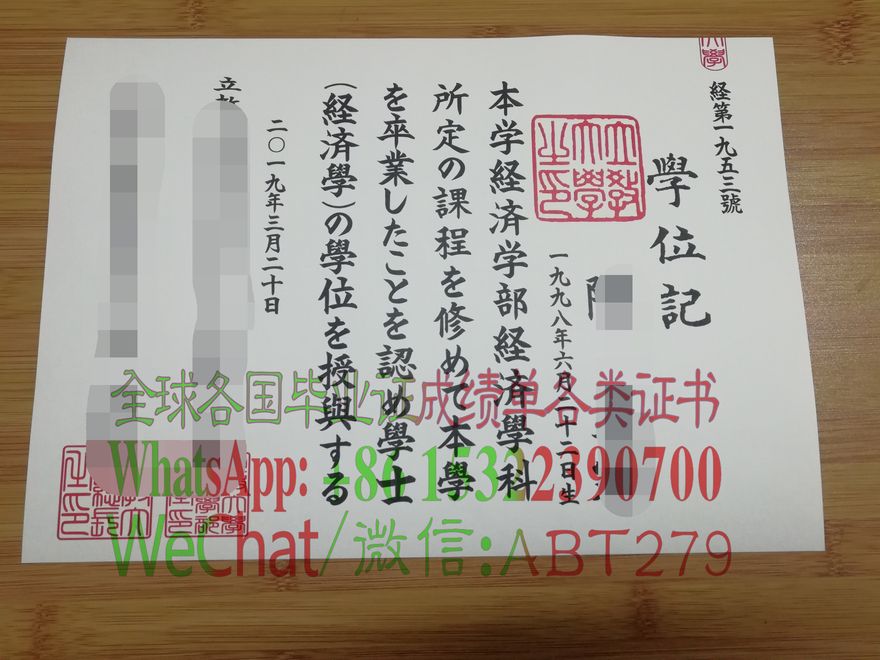 経第一九五三號
學位記
一九九八年六月二十二日生
本学経済学部経済學科
所定の課程を修めて本學
を卒業したことを認め學士
（経済學）の學位を授與する
二〇一九年三月二十日
立教
立教
大學
之印
全球各国毕业证成绩单各类证书
WhatsApp: +86 15322390700
WeChat/微信:ABT279